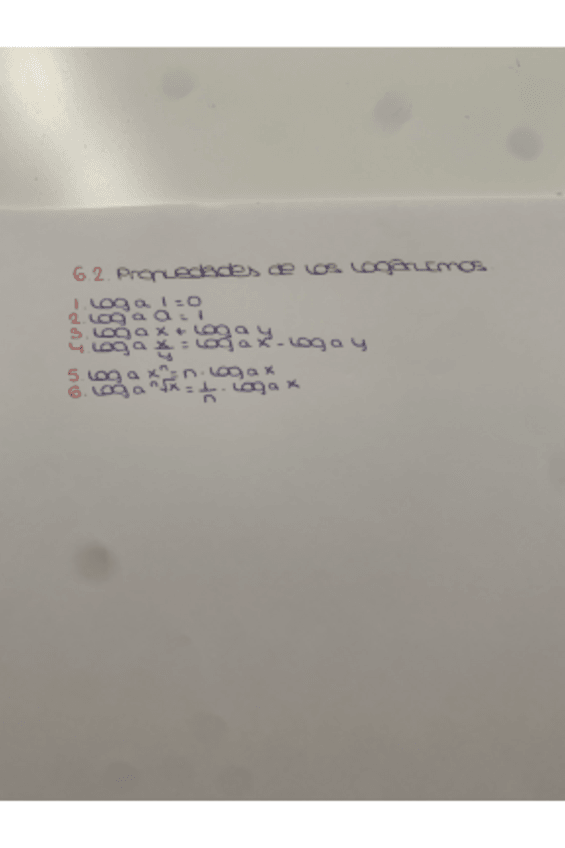 6.2. Propiedades de los logaritmos
1. log a 1 = 0
2. log a a = 1
3. log a x + log a y
4. log a x/y = log a x - log a y
5. log a xⁿ = n · log a x
6. log a ⁿ√x = 1/n · log a x